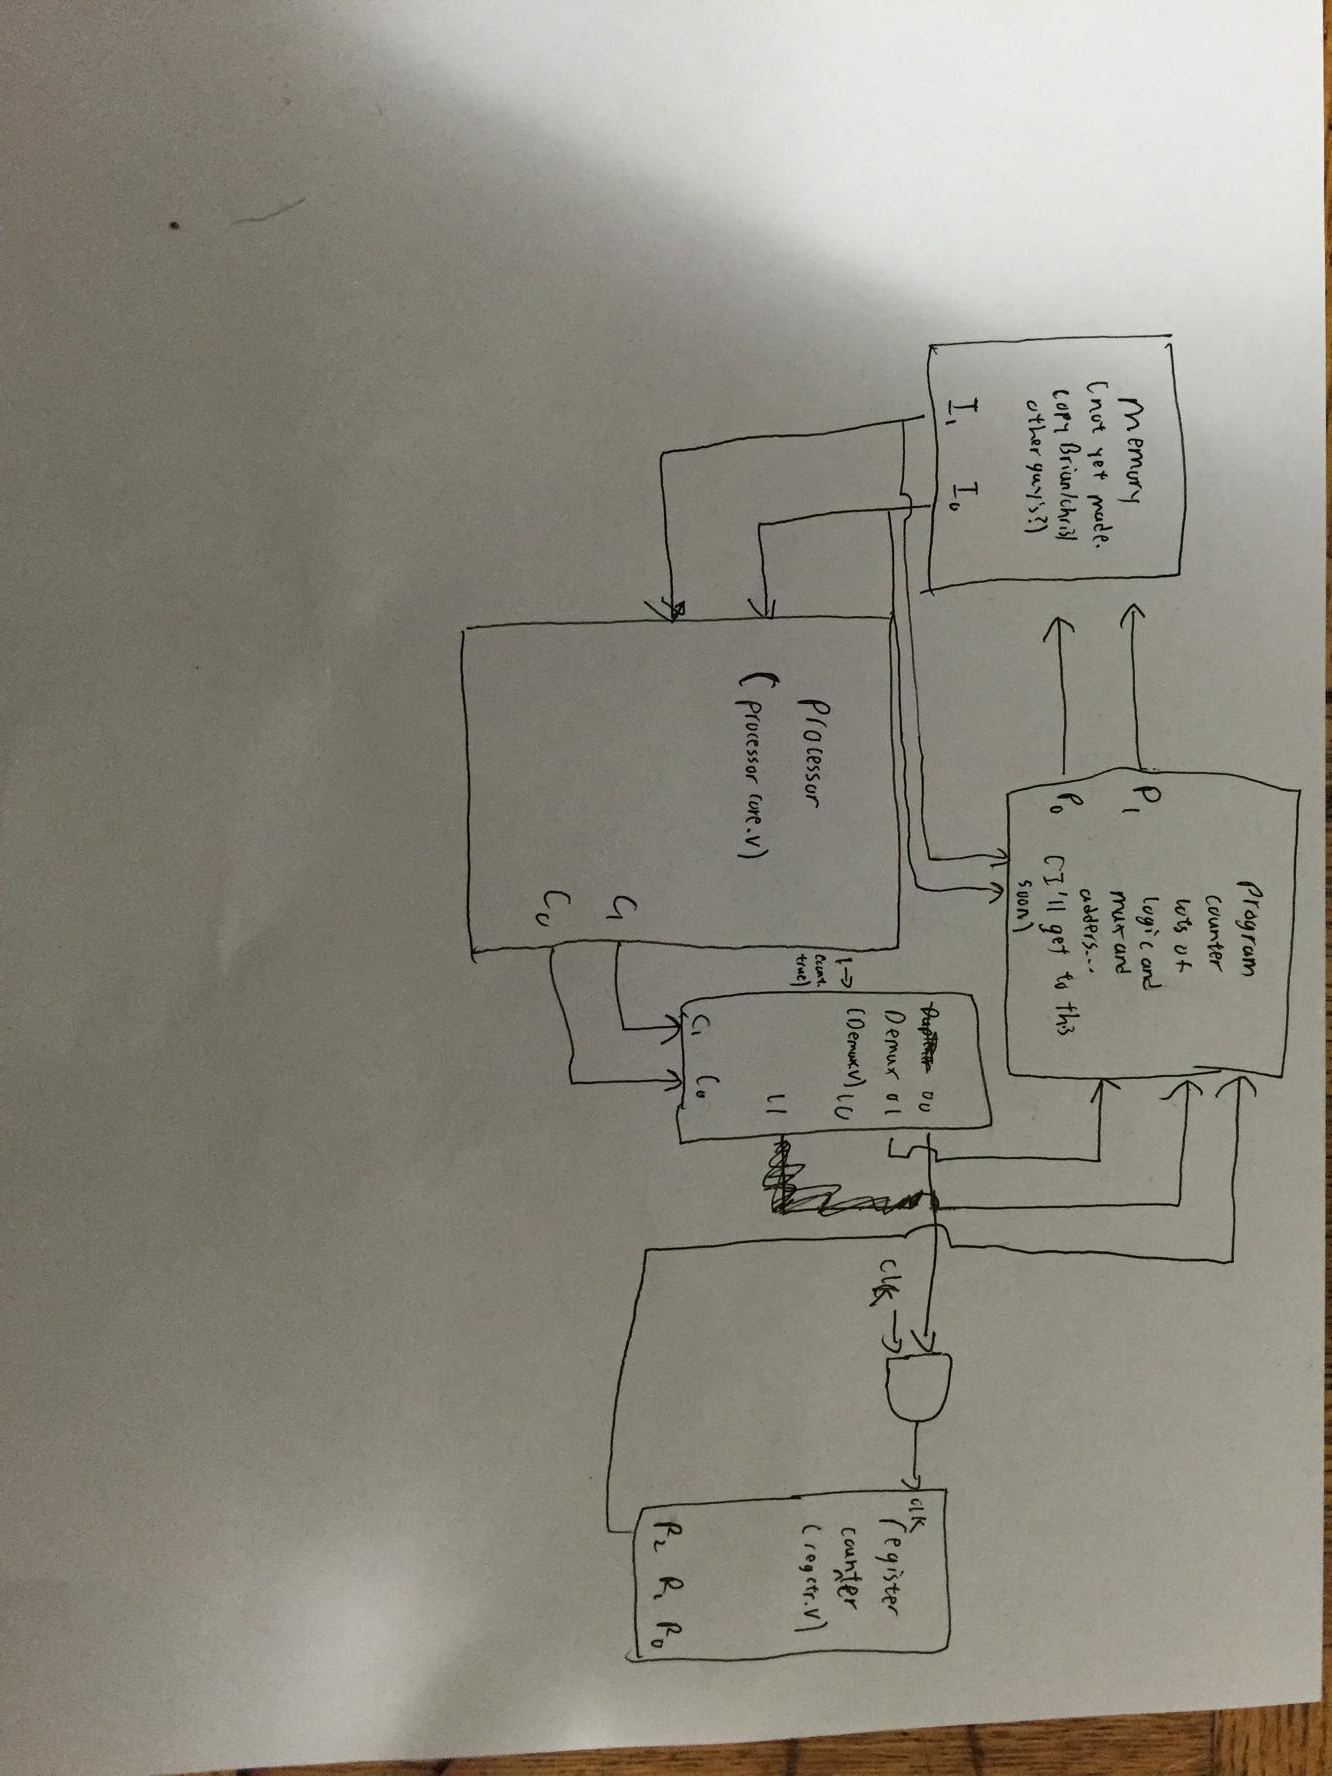 Memory
(not yet made.
copy Brian/chris/
other guy's?)
I₁ I₀
Program
counter
lots of
logic and
mux and
adders...
(I'll get to this
soon)
P₁
P₀
Processor
(processor core.v)
C₁
C₀
1→
true)
00
Demux 01
(Demux.v) 10
11
C₁ C₀
clk
clk
register
counter
(regctr.v)
R₂ R₁ R₀